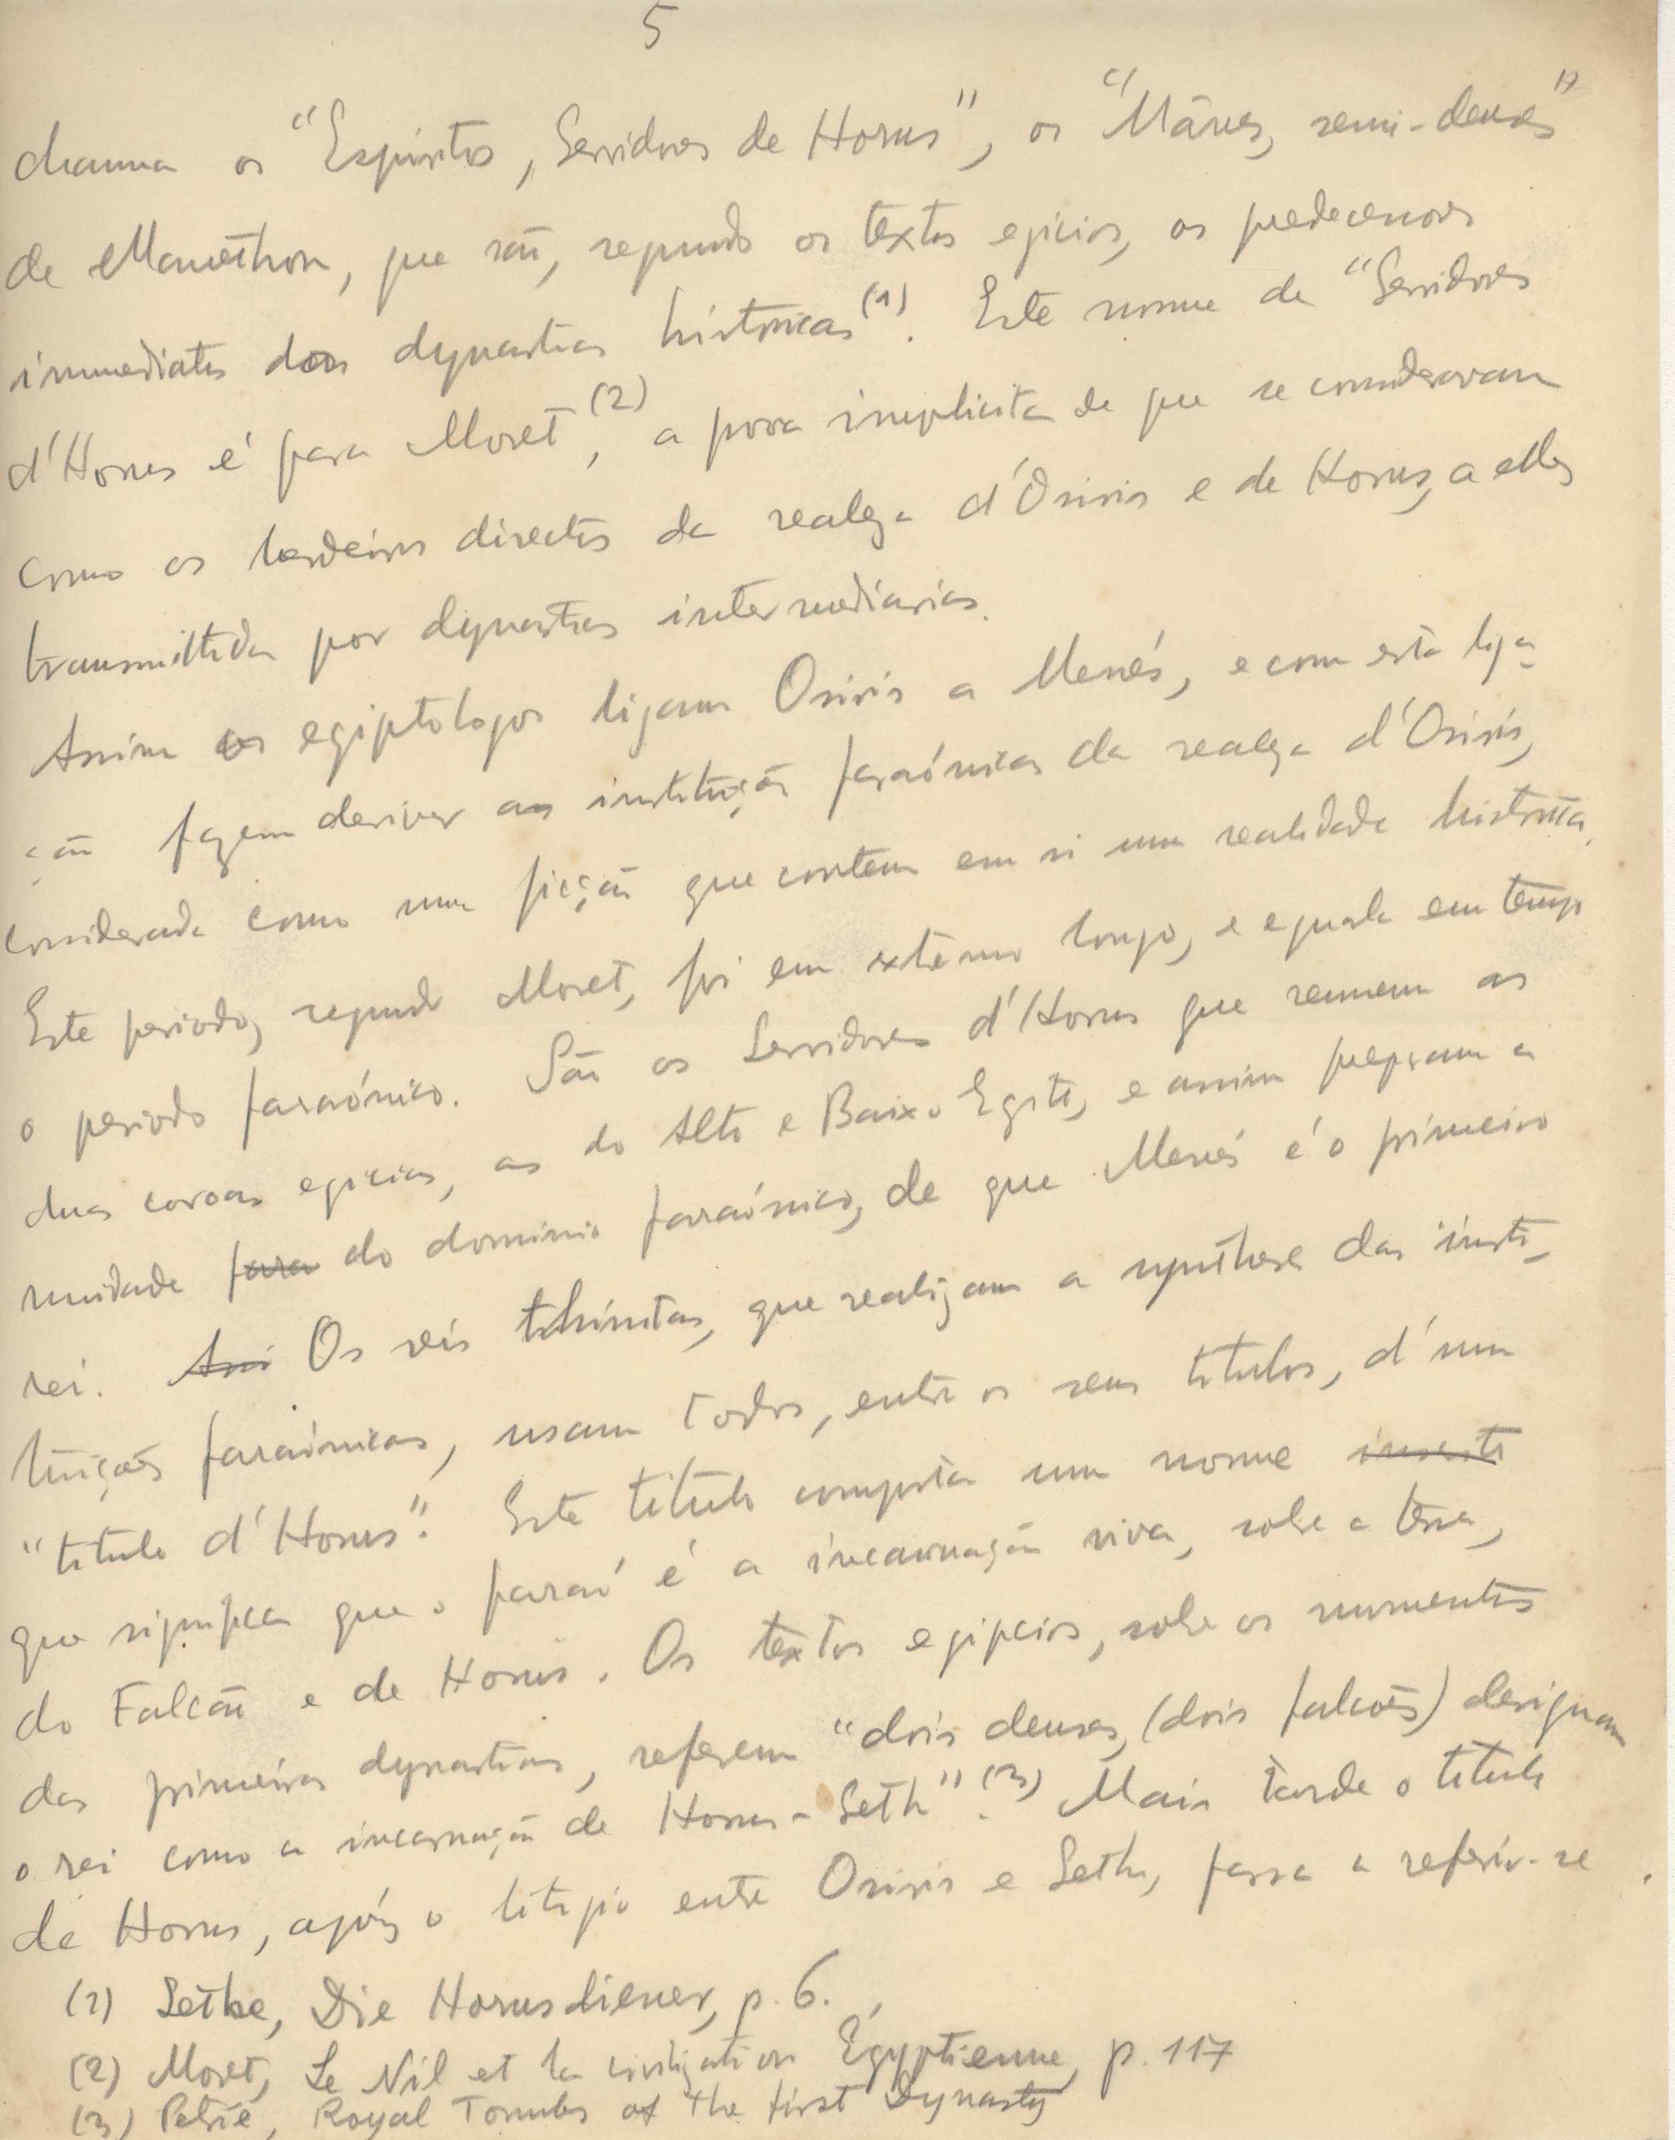 5
chama os "Espiritos, Servidores de Horus", os "Mânes, semi-deuses"
de Manethon, que são, segundo os textos egicios, os predecessores
immediatos das dynastias historicas (1). Este nome de "Servidores
d'Horus é para Moret, (2) a prova implicita de que se consideravam
como os herdeiros directos da realeza d'Osiris e de Horus, a elles
transmittida por dynastias intermediarias.
Assim os egiptologos ligam Osiris a Menés, e com esta liga-
ção fazem derivar as instituição faraónicas da realeza d'Osiris,
considerada como uma ficção que contem em si uma realidade historica.
Este periodo, segundo Moret, foi em extremo longo, e eguala em tempo
o periodo faraónico. São os Servidores d'Horus que reunem as
duas coroas egicias, as do Alto e Baixo Egito, e assim preparam a
unidade para do dominio faraónico, de que Menés é o primeiro
rei. Assi Os reis thinitas, que realizam a synthese das insti-
tuições faraónicas, usam todos, entre os seus titulos, d'um
"titulo d'Horus". Este titulo comporta um nome
que significa que o faraó é a incarnação viva, sobre a terra,
do Falcão e de Horus. Os textos egipcios, sobre os numentos
das primeiras dynastias, referem "dois deuses, (dois falcões) designam
o rei como a incarnação de Horus-Seth". (3) Mais tarde o titulo
de Horus, após o litigio entre Osiris e Seth, passa a referir-se
(1) Sethe, Die Horusdiener, p. 6.
(2) Moret, Le Nil et la civilization Égyptienne, p. 117
(3) Petrie, Royal Tombs of the first Dynasty